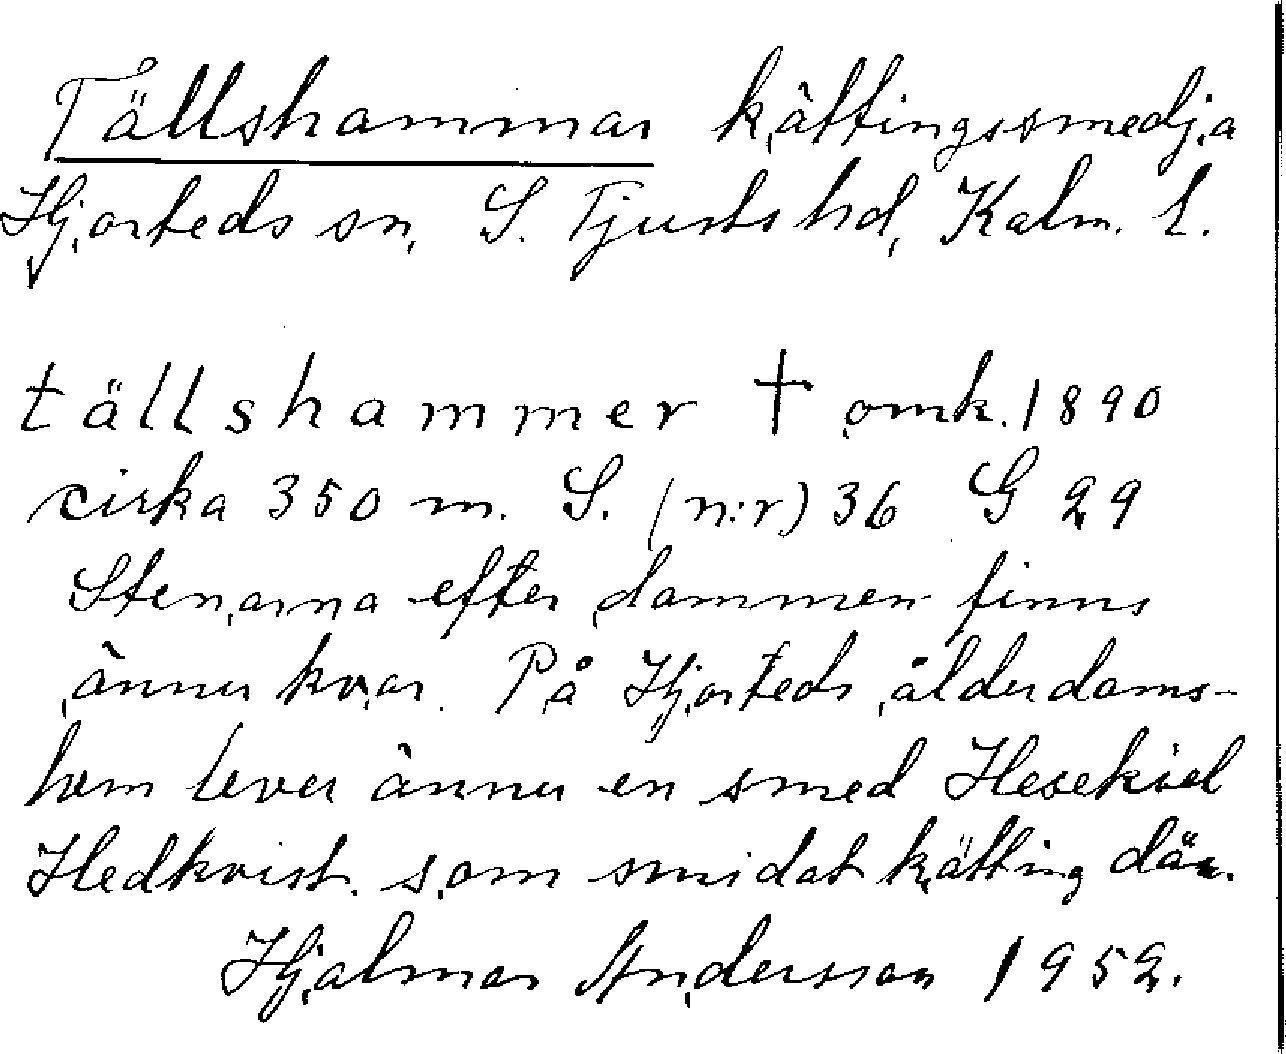 Tällshammar kättingssmedja
Hjorteds sn, S. Tjusts hd, Kalm. l.
tällshammer † omk. 1890
cirka 350 m. S. (n:r) 36 G 29
Stenarna efter dammen finns
ännu kvar. På Hjorteds ålderdoms-
hem lever ännu en smed Hesekiel
Hedkvist. som smidat kätting där.
Hjalmar Andersson 1952.